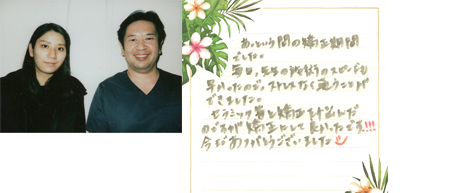 あっという間の矯正期間
でした。
毎日、先生の施術のスピードも
早かったので、ストレスなく通うことが
できました。
セラミック と矯正を
のですが 矯正にして良かったです!!!
今までありがとうございました